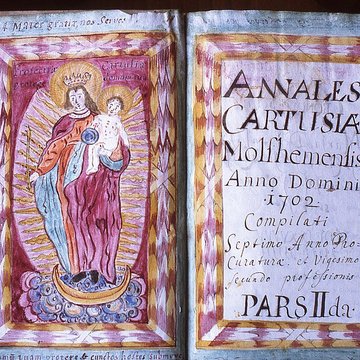 Mater gratiæ, nos Servos
Protectrix
ANNALES
CARTUSIÆ
Molshemensis
Anno Domini
1702
Compilati
Septimo Anno Pro-
Curaturæ et Vigesimo
secundo professionis
PARS II da.
tuam protege & cunctos hostes submove